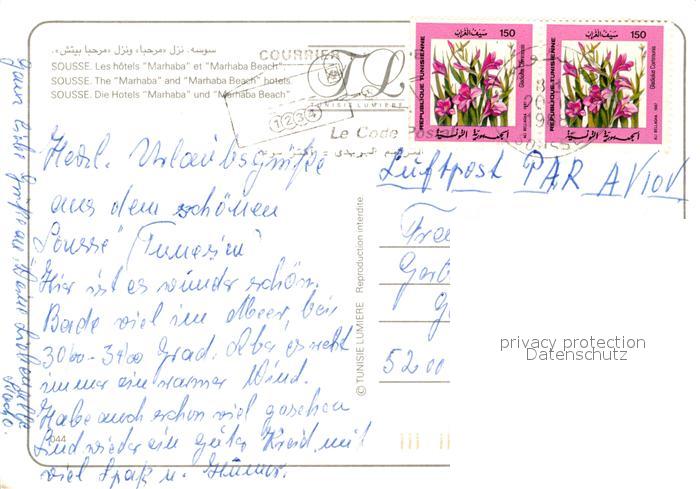 سوسه. نزل «مرحبا» ونزل «مرحبا بيتش».
SOUSSE. Les hôtels "Marhaba" et "Marhaba Beach"
SOUSSE. The "Marhaba" and "Marhaba Beach" hotels
SOUSSE. Die Hotels "Marhaba" und "Marhaba Beach"
COURRIER
TL
TUNISIE LUMIERE
1234
Le Code Postal
150
REPUBLIQUE TUNISIENNE
سيف الغراب
Gladiolus Communis
الجمهورية التونسية
150
REPUBLIQUE TUNISIENNE
سيف الغراب
Gladiolus Communis
الجمهورية التونسية
Herzl. Urlaubsgrüße
aus dem schönen
Sousse (Tunesien)
Hier ist es wunderschön.
Bade viel im Meer, bei
Grad. Aber es weht
immer ein warmer Wind.
Habe auch schon viel gesehen
Sind wieder ein guter Kreis mit
viel Spaß u. Humor.
Luftpost PAR AVION
52
© TUNISIE LUMIERE Reproduction interdite
044
privacy protection
Datenschutz